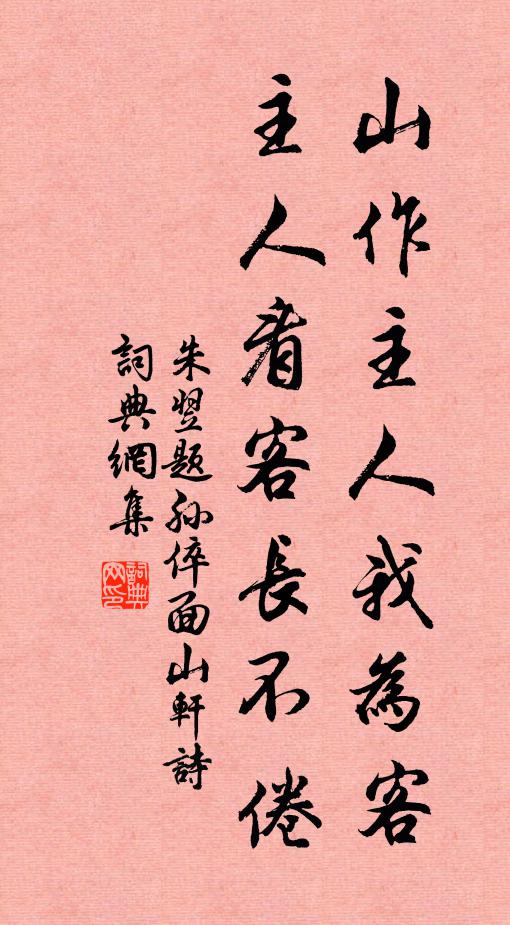 山作主人我為客
主人看客長不倦
朱翌題孫倅面山軒詩
詞典網集
詞典網印